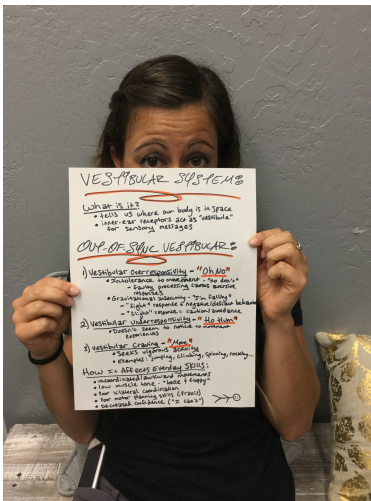 VESTIBULAR SYSTEM:
What is it?
• tells us where our body is in space
• inner-ear receptors act as "vestibule"
for sensory messages
OUT-OF-SYNC VESTIBULAR:
1) Vestibular Overresponsivity - "Oh No"
• Intolerance to movement - "no don't"
- faulty processing causes aversive
responses
• Gravitational insecurity - "I'm Falling"
- "fight" response = negative/defiant behavior
- "flight" response = caution/avoidance
2) Vestibular Underresponsivity - "Ho Hum"
• Doesn't seem to notice to movement
experiences
3) Vestibular Craving - "More"
• Seeks vigorous activity
• Examples: jumping, climbing, spinning, rocking...
How It Affects Everyday Skills:
• incoordinated/awkward movements
• low muscle tone - "loose & floppy"
• Poor bilateral coordination
• Poor motor planning skills (Praxis)
• Decreased confidence ("I can't")